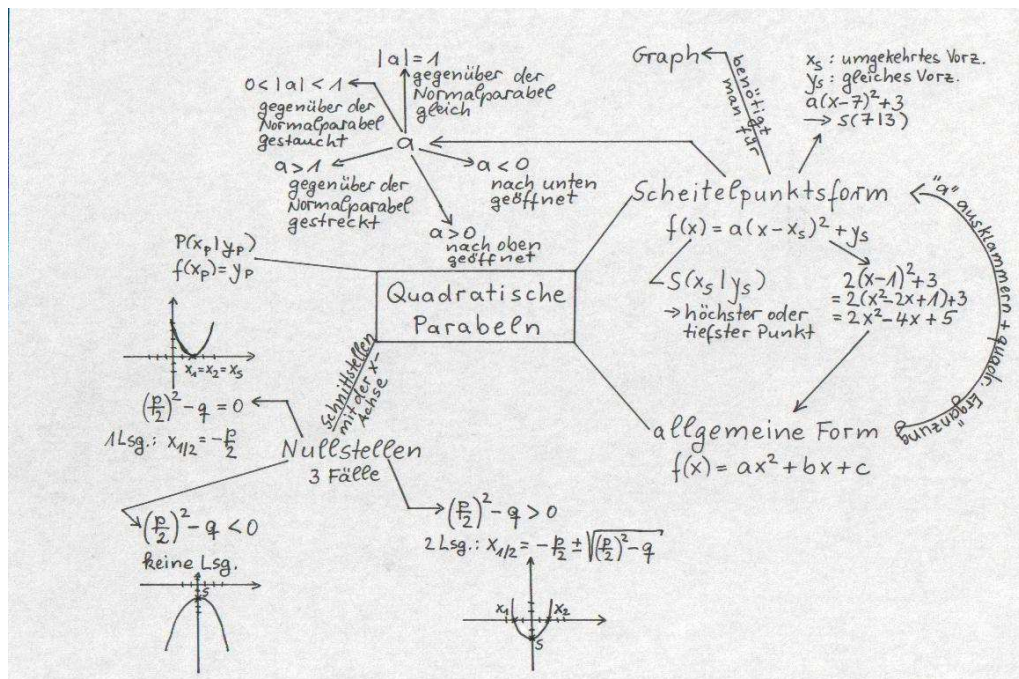 |a| = 1
gegenüber der
Normalparabel
gleich
0 < |a| < 1
gegenüber der
Normalparabel
gestaucht
a
a > 1
gegenüber der
Normalparabel
gestreckt
a < 0
nach unten
geöffnet
a > 0
nach oben
geöffnet
Graph
benötigt
man für
xₛ : umgekehrtes Vorz.
yₛ : gleiches Vorz.
a(x-7)² + 3
→ S(7|3)
Scheitelpunktsform
f(x) = a(x-xₛ)² + yₛ
S(xₛ|yₛ)
→ höchster oder
tiefster Punkt
2(x-1)²+3
= 2(x²-2x+1)+3
= 2x²-4x+5
"a" ausklammern + quadr. Ergänzung"
allgemeine Form
f(x) = ax² + bx + c
Quadratische
Parabeln
P(xₚ|yₚ)
f(xₚ) = yₚ
Schnittstellen
mit der x-
Achse
Nullstellen
3 Fälle
x₁=x₂=xₛ
(p/2)² - q = 0
1 Lsg.: x₁/₂ = -p/2
(p/2)² - q < 0
keine Lsg.
S
(p/2)² - q > 0
2 Lsg.: x₁/₂ = -p/2 ± √((p/2)² - q)
x₁ x₂
S